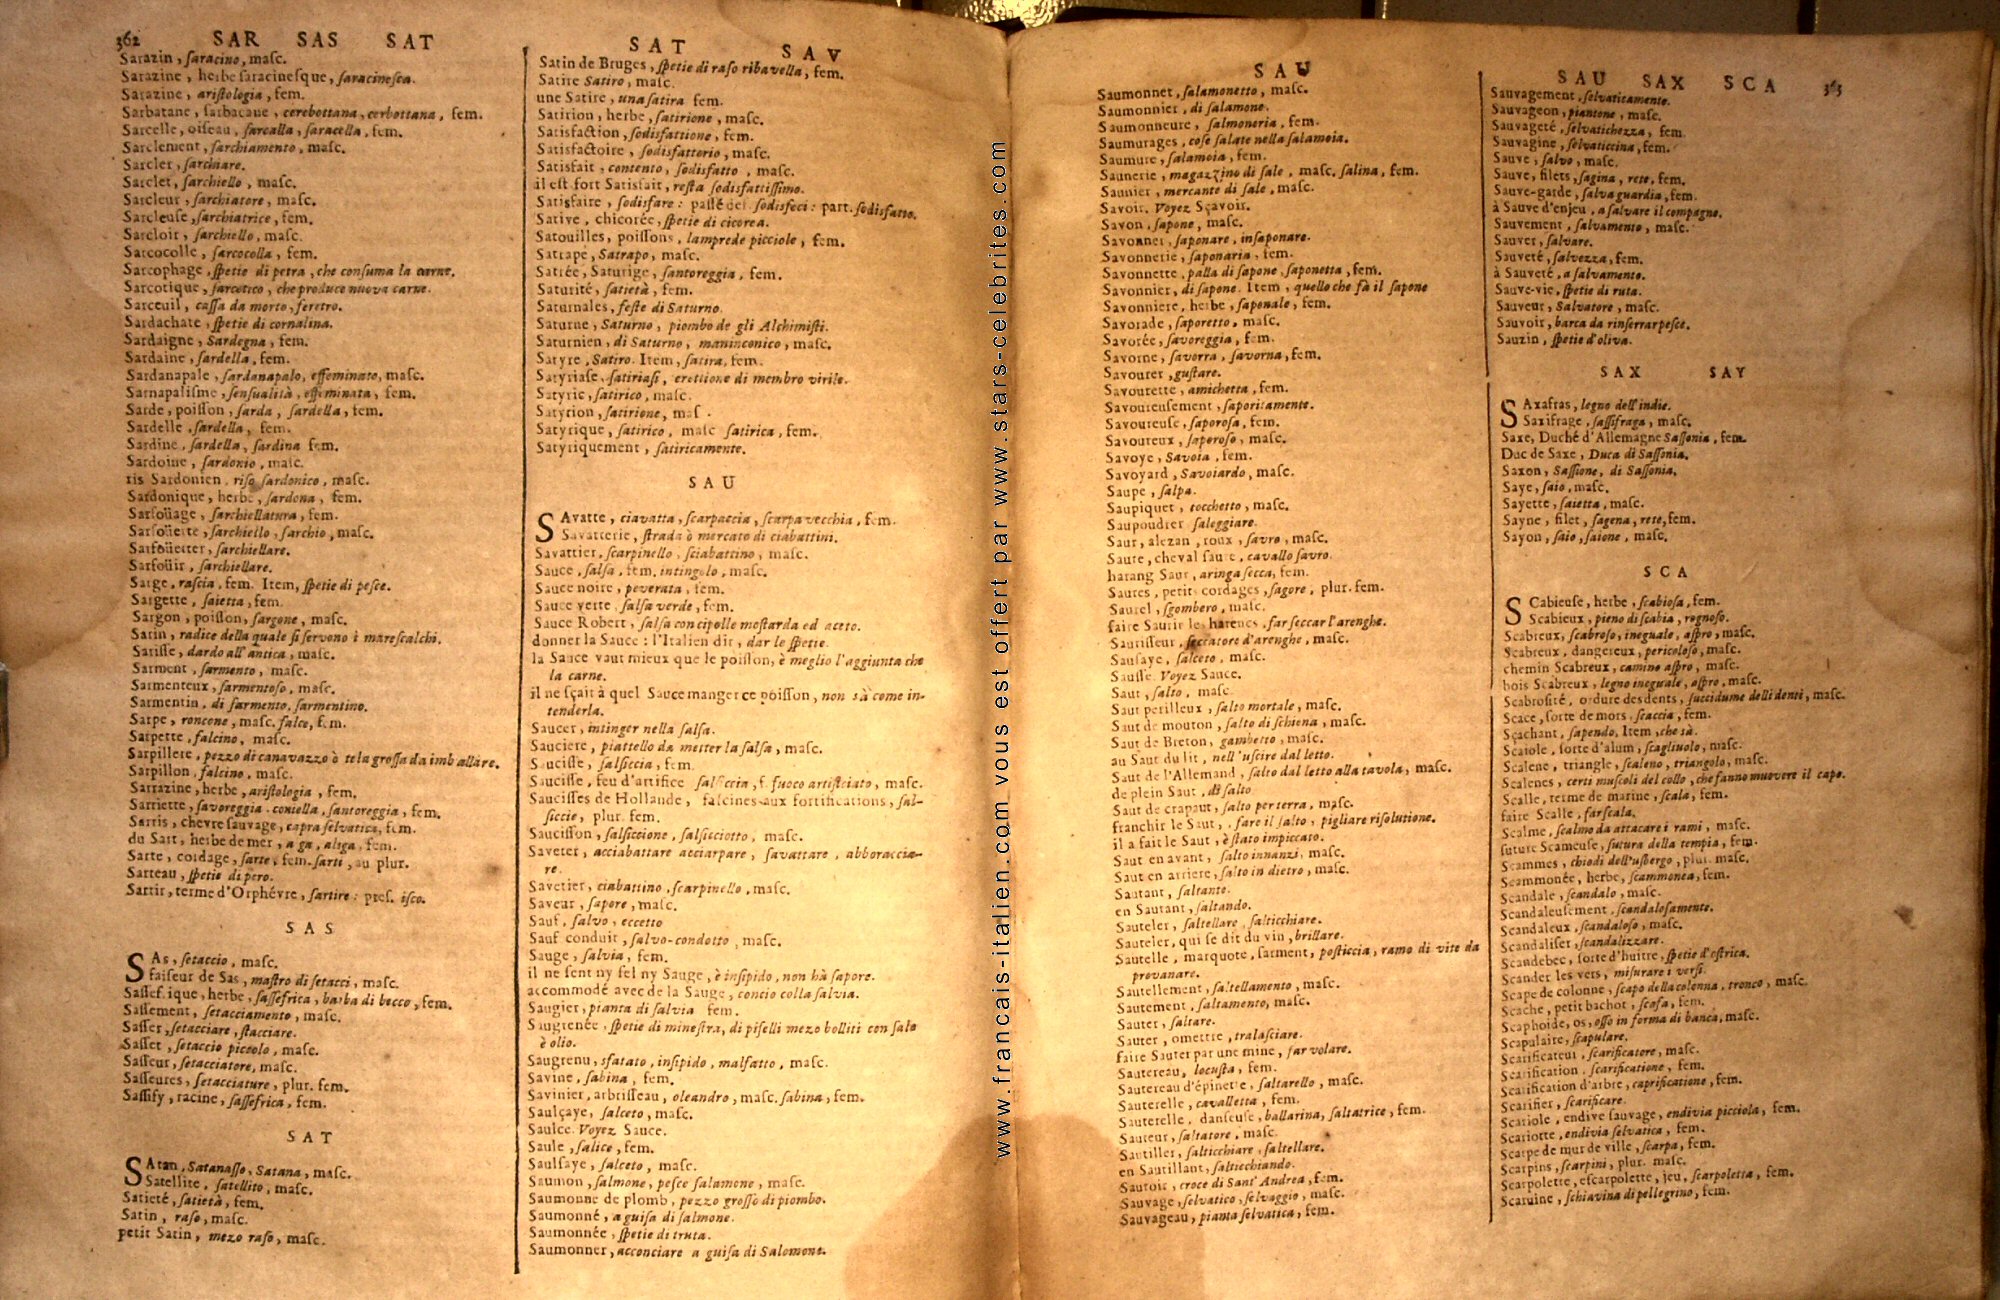 362 SAR SAS SAT
Sarazin, ſaracino, maſc.
Sarazine, herbe ſaracineſque, ſaracineſca.
Sarazine, ariſtologia, fem.
Sarbatane, ſarbacane, cerebottana, cerbottana, fem.
Sarcelle, oiſeau, ſarcalla, ſaracella, fem.
Sarclement, ſarchiamento, maſc.
Sarcler, ſarchiare.
Sarclet, ſarchiello, maſc.
Sarcleur, ſarchiatore, maſc.
Sarcleuſe, ſarchiatrice, fem.
Sarcloir, ſarchiello, maſc.
Sarcocolle, ſarcocolla, fem.
Sarcophage, ſpetie di petra, che conſuma la carne.
Sarcotique, ſarcotico, che produce nuova carne.
Sarceuil, caſſa da morto, feretro.
Sardachate, ſpetie di cornalina.
Sardaigne, Sardegna, fem.
Sardaine, ſardella, fem.
Sardanapale, ſardanapalo, effeminato, maſc.
Sarnapaliſme, ſenſualità, effeminata, fem.
Sarde, poiſſon, ſarda, ſardella, fem.
Sardelle, ſardella, fem.
Sardine, ſardella, ſardina fem.
Sardoine, ſardonio, maſc.
ris Sardonien, riſo ſardonico, maſc.
Sardonique, herbe, ſardona, fem.
Sarfoüage, ſarchiellatura, fem.
Sarfoüette, ſarchiello, ſarchio, maſc.
Sarfoüetter, ſarchiellare.
Sarfoüir, ſarchiellare.
Sarge, raſcia, fem. Item, ſpetie di peſce.
Sargette, ſaietta, fem.
Sargon, poiſſon, ſargone, maſc.
Sarin, radice della quale ſi ſervono i mareſcalchi.
Sariſſe, dardo all'antica, maſc.
Sarment, ſarmento, maſc.
Sarmenteux, ſarmentoſo, maſc.
Sarmentin, di ſarmento, ſarmentino.
Sarpe, roncone, maſc. falce, fem.
Sarpette, falcino, maſc.
Sarpillere, pezzo di canavazzo ò tela groſſa da imballare.
Sarpillon, falcino, maſc.
Sarrazine, herbe, ariſtologia, fem.
Sarriette, ſavoreggia, coniella, ſantoreggia, fem.
Sarris, chevre ſauvage, capra ſelvatica, fem.
du Sart, herbe de mer, aga, aliga, fem.
Sarte, cordage, ſarte, fem. ſarti, au plur.
Sarteau, ſpetie di pero.
Sartir, terme d'Orphévre, ſartire: preſ. iſco.
SAS
SAs, ſetaccio, maſc.
faiſeur de Sas, maſtro di ſetacci, maſc.
Saſſefrique, herbe, ſaſſefrica, barba di becco, fem.
Saſſement, ſetacciamento, maſc.
Saſſer, ſetacciare, ſtacciare.
Saſſet, ſetaccio piccolo, maſc.
Saſſeur, ſetacciatore, maſc.
Saſſeures, ſetacciature, plur. fem.
Saſſify, racine, ſaſſefrica, fem.
SAT
SAtan, Satanaſſo, Satana, maſc.
Satellite, ſatellito, maſc.
Satieté, ſatietà, fem.
Satin, raſo, maſc.
petit Satin, mezo raſo, maſc.
SAT SAV
Satin de Bruges, ſpetie di raſo ribavella, fem.
Satire Satiro, maſc.
une Satire, una ſatira fem.
Satirion, herbe, ſatirione, maſc.
Satisfaction, ſodisfattione, fem.
Satisfactoire, ſodisfattorio, maſc.
Satisfait, contento, ſodisfatto, maſc.
il eſt fort Satisfait, reſta ſodisfattiſſimo.
Satisfaire, ſodisfare: paſſé def. ſodisfeci: part. ſodisfatto.
Sative, chicorée, ſpetie di cicorea.
Satouilles, poiſſons, lamprede picciole, fem.
Satrape, Satrapo, maſc.
Satrée, Saturige, ſantoreggia, fem.
Saturité, ſatietà, fem.
Saturnales, feſte di Saturno.
Saturne, Saturno, piombo de gli Alchimiſti.
Saturnien, di Saturno, maninconico, maſc.
Satyre, Satiro. Item, ſatira, fem.
Satyriaſe, ſatiriaſi, erettione di membro virile.
Satyric, ſatirico, maſc.
Satyrion, ſatirione, maſ.
Satyrique, ſatirico, maſc ſatirica, fem.
Satyriquement, ſatiricamente.
SAU
SAvatte, ciavatta, ſcarpaccia, ſcarpa vecchia, fem.
Savatterie, ſtrada ò mercato di ciabattini.
Savattier, ſcarpinello, ſciabattino, maſc.
Sauce, ſalſa, fem. intingolo, maſc.
Sauce noire, peverata, fem.
Sauce verte, ſalſa verde, fem.
Sauce Robert, ſalſa con cipolle moſtarda ed aceto.
donner la Sauce: l'Italien dit, dar le ſpetie.
la Sauce vaut mieux que le poiſſon, è meglio l'aggiunta che
la carne.
il ne ſçait à quel Sauce manger ce poiſſon, non sà come in-
tenderla.
Saucer, intinger nella ſalſa.
Sauciere, piattello da metter la ſalſa, maſc.
Sauciſſe, ſalſiccia, fem.
Sauciſſe, feu d'artifice ſalſiccia, f. fuoco artificiato, maſc.
Sauciſſes de Hollande, faſcines aux fortifications, ſal-
ſiccie, plur. fem.
Sauciſſon, ſalſiccione, ſalſicciotto, maſc.
Saveter, acciabattare acciarpare, ſavattare, abboraccia-
re.
Savetier, ciabattino, ſcarpinello, maſc.
Saveur, ſapore, maſc.
Sauf, ſalvo, eccetto
Sauf conduit, ſalvo-condotto, maſc.
Sauge, ſalvia, fem.
il ne ſent ny ſel ny Sauge, è inſipido, non hà ſapore.
accommodé avec de la Sauge, concio colla ſalvia.
Saugier, pianta di ſalvia fem.
Saugrenée, ſpetie di mineſtra, di piſelli mezo bolliti con ſale
è olio.
Saugrenu, sfatato, inſipido, malfatto, maſc.
Savine, ſabina, fem.
Savinier, arbriſſeau, oleandro, maſc. ſabina, fem.
Saulçaye, ſalceto, maſc.
Saulce. Voyez Sauce.
Saule, ſalice, fem.
Saulſaye, ſalceto, maſc.
Saumon, ſalmone, peſce ſalamone, maſc.
Saumone de plomb, pezzo groſſo di piombo.
Saumonné, a guiſa di ſalmone.
Saumonnée, ſpetie di truta.
Saumonner, acconciare a guiſa di Salomone.
www.francais-italien.com vous est offert par www.stars-celebrites.com
SAU
Saumonnet, ſalamonetto, maſc.
Saumonnier, di ſalamone.
Saumonneure, ſalmoneria, fem.
Saumurages, coſe ſalate nella ſalamoia.
Saumure, ſalamoia, fem.
Saunerie, magazzino di ſale, maſc. ſalina, fem.
Saunier, mercante di ſale, maſc.
Savoir. Voyez Sçavoir.
Savon, ſapone, maſc.
Savonner, ſaponare, inſaponare.
Savonnerie, ſaponaria, fem.
Savonnette, palla di ſapone, ſaponetta, fem.
Savonnier, di ſapone. Item, quello che fà il ſapone
Savonniere, herbe, ſaponale, fem.
Savorade, ſaporetto, maſc.
Savorée, ſavoreggia, fem.
Savorne, ſavorra, ſavorna, fem.
Savourer, guſtare.
Savourette, amichetta, fem.
Savoureuſement, ſaporitamente.
Savoureuſe, ſaporoſa, fem.
Savoureux, ſaporoſo, maſc.
Savoye, Savoia, fem.
Savoyard, Savoiardo, maſc.
Saupe, ſalpa.
Saupiquet, tocchetto, maſc.
Saupoudrer ſaleggiare.
Saur, alezan, roux, ſavro, maſc.
Saure, cheval ſaure, cavallo ſavro.
harang Saur, aringa ſecca, fem.
Saures, petits cordages, ſagore, plur. fem.
Saurel, ſgombero, maſc.
faire Saurir les harencs, far ſeccar l'arenghe.
Sauriſſeur, ſeccatore d'arenghe, maſc.
Sauſaye, ſalceto, maſc.
Sauſſe. Voyez Sauce.
Saut, ſalto, maſc.
Saut perilleux, ſalto mortale, maſc.
Saut de mouton, ſalto di ſchiena, maſc.
Saut de Breton, gambetto, maſc.
au Saut du lit, nell'uſcire dal letto.
Saut de l'Allemand, ſalto dal letto alla tavola, maſc.
de plein Saut, di ſalto
Saut de crapaut, ſalto per terra, maſc.
franchir le Saut, fare il ſalto, pigliare riſolutione.
il a fait le Saut, è ſtato impiccato.
Saut en avant, ſalto innanzi, maſc.
Saut en arriere, ſalto in dietro, maſc.
Sautant, ſaltante.
en Sautant, ſaltando.
Sauteler, ſaltellare, ſalticchiare.
Sauteler, qui ſe dit du vin, brillare.
Sautelle, marquote, ſarment, poſticcia, ramo di vite da
provanare.
Sautellement, ſaltellamento, maſc.
Sautement, ſaltamento, maſc.
Sauter, ſaltare.
Sauter, omettre, tralaſciare.
faire Sauter par une mine, far volare.
Sautereau, locuſta, fem.
Sautereau d'épinette, ſaltarello, maſc.
Sauterelle, cavalletta, fem.
Sauterelle, danſeuſe, ballarina, ſaltatrice, fem.
Sauteur, ſaltatore, maſc.
Sautiller, ſalticchiare, ſaltellare.
en Sautillant, ſalticchiando.
Sautoir, croce di Sant' Andrea, fem.
Sauvage, ſelvatico, ſelvaggio, maſc.
Sauvageau, pianta ſelvatica, fem.
SAU SAX SCA 363
Sauvagement, ſelvaticamente.
Sauvageon, piantone, maſc.
Sauvageté, ſelvatichezza, fem.
Sauvagine, ſelvaticcina, fem.
Sauve, ſalvo, maſc.
Sauve, filets, ſagina, rete, fem.
Sauve-garde, ſalva guardia, fem.
à Sauve d'enjeu, a ſalvare il compagno.
Sauvement, ſalvamento, maſc.
Sauver, ſalvare.
Sauveté, ſalvezza, fem.
à Sauveté, a ſalvamento.
Sauve-vie, ſpetie di ruta.
Sauveur, Salvatore, maſc.
Sauvoir, barca da rinſerrar peſce.
Sauzin, ſpetie d'oliva.
SAX SAY
SAxafras, legno dell'indie.
Saxifrage, ſaſſifraga, maſc.
Saxe, Duché d'Allemagne Saſſonia, fem.
Duc de Saxe, Duca di Saſſonia.
Saxon, Saſſione, di Saſſonia.
Saye, ſaio, maſc.
Sayette, ſaietta, maſc.
Sayne, filet, ſagena, rete, fem.
Sayon, ſaio, ſaione, maſc.
SCA
SCabieuſe, herbe, ſcabioſa, fem.
Scabieux, pieno di ſcabia, rognoſo.
Scabreux, ſcabroſo, ineguale, aſpro, maſc.
Scabreux, dangereux, pericoloſo, maſc.
chemin Scabreux, camino aſpro, maſc.
bois Scabreux, legno ineguale, aſpro, maſc.
Scabroſité, ordure des dents, ſuccidume delli denti, maſc.
Scace, ſorte de mors, ſcaccia, fem.
Sçachant, ſapendo. Item, che sà.
Scaiole, ſorte d'alum, ſcagliuolo, maſc.
Scalene, triangle, ſcaleno, triangolo, maſc.
Scalenes, certi muſcoli del collo, che fanno muovere il capo.
Scalle, terme de marine, ſcala, fem.
faire Scalle, far ſcala.
Scalme, ſcalmo da attacare i rami, maſc.
ſuture Scameuſe, ſutura della tempia, fem.
Scammes, chiodi dell'usbergo, plur. maſc.
Scammonée, herbe, ſcammonea, fem.
Scandale, ſcandalo, maſc.
Scandaleuſement, ſcandaloſamente.
Scandaleux, ſcandaloſo, maſc.
Scandaliſer, ſcandalizzare.
Scandebec, ſorte d'huitre, ſpetie d'oſtrica.
Scander les vers, miſurare i verſi.
Scape de colonne, ſcapo della colonna, tronco, maſc.
Scache, petit bachot, ſcafa, fem.
Scaphoide, os, oſſo in forma di barca, maſc.
Scapulaire, ſcapulare.
Scarificateur, ſcarificatore, maſc.
Scarification, ſcarificatione, fem.
Scarification d'arbre, caprificatione, fem.
Scarifier, ſcarificare.
Scariole, endive ſauvage, endivia picciola, fem.
Scariotte, endivia ſelvatica, fem.
Scarpe de mur de ville, ſcarpa, fem.
Scarpins, ſcarpini, plur. maſc.
Scarpolette, eſcarpolette, jeu, ſcarpoletta, fem.
Scaruine, ſchiavina di pellegrino, fem.